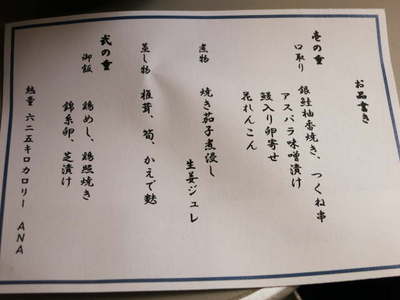 お品書き
壱の重
口取り 銀鮭柚香焼き、つくね串
アスパラ味噌漬け
鰻入り卵寄せ
花れんこん
煮物 焼き茄子煮浸し
生姜ジュレ
蒸し物 椎茸、筍、かえで麩
弐の重
御飯 鶏めし、鶏照焼き
錦糸卵、芝漬け
熱量 六二五キロカロリー ANA